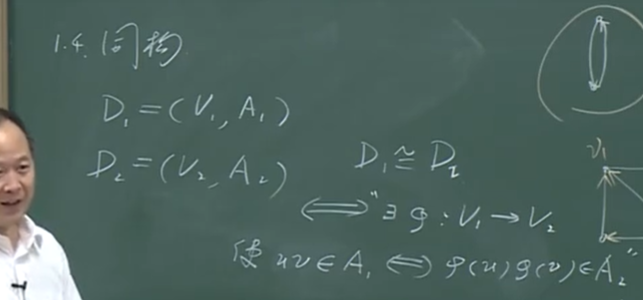 1.4. 同构
D₁=(V₁,A₁)
D₂=(V₂,A₂)
D₁≅D₂
⟺ "∃φ:V₁→V₂
使 uv∈A₁ ⟺ φ(u)φ(v)∈A₂"
v₁